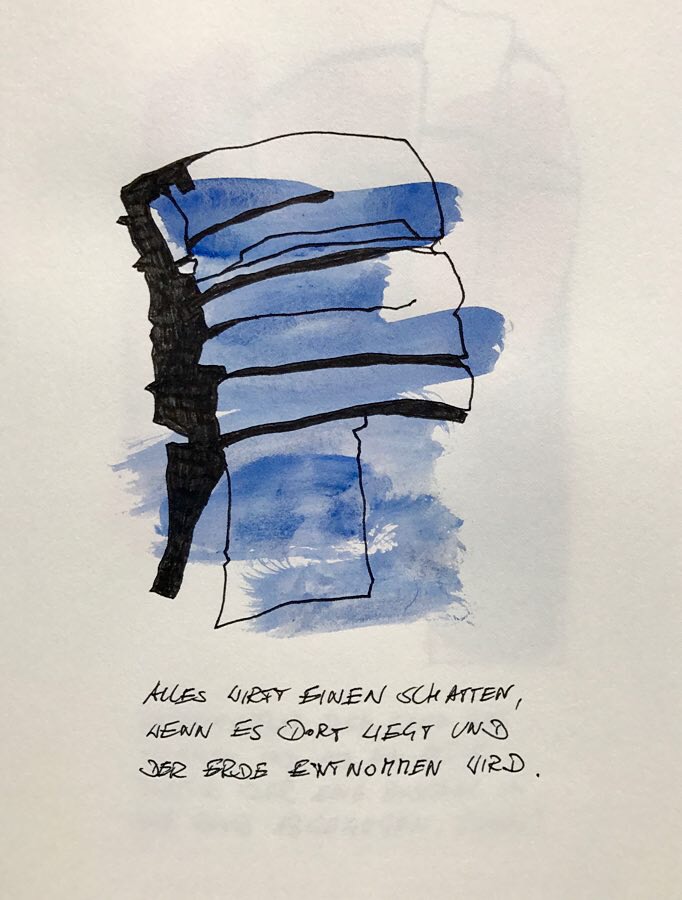 ALLES WIRFT EINEN SCHATTEN,
WENN ES DORT LIEGT UND
DER ERDE ENTNOMMEN WIRD.